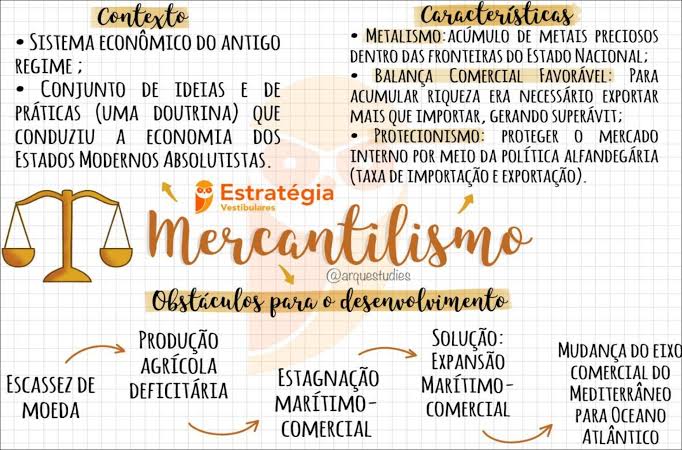 Contexto
• Sistema econômico do antigo
regime ;
• Conjunto de ideias e de
práticas (uma doutrina) que
conduziu a economia dos
Estados Modernos Absolutistas.
Características
• Metalismo: acúmulo de metais preciosos
dentro das fronteiras do Estado Nacional;
• Balança Comercial Favorável: Para
acumular riqueza era necessário exportar
mais que importar, gerando superávit;
• Protecionismo: proteger o mercado
interno por meio da política alfandegária
(taxa de importação e exportação).
Estratégia
Vestibulares
Mercantilismo
@arquestudies
Obstáculos para o desenvolvimento
Escassez de
moeda
Produção
agrícola
deficitária
Estagnação
marítimo-
comercial
Solução:
Expansão
Marítimo-
comercial
Mudança do eixo
comercial do
Mediterrâneo
para Oceano
Atlântico